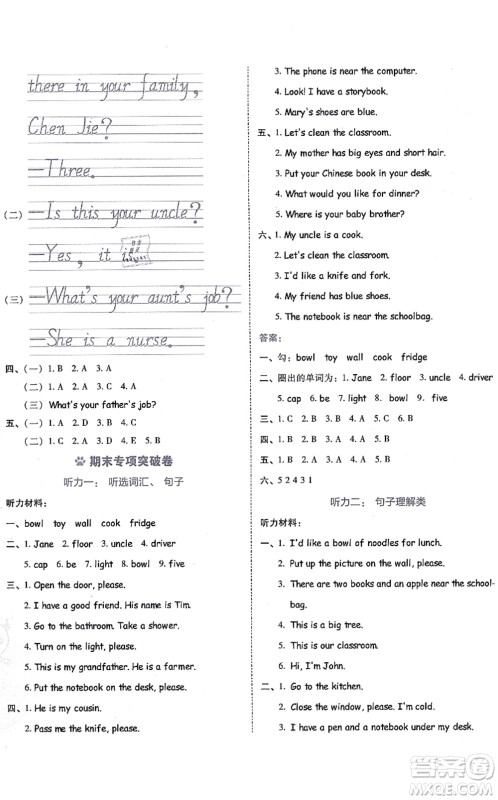 there in your family,
Chen Jie?
—Three.
(二) —Is this your uncle?
—Yes, it
(三) —What's your aunt's job?
—She is a nurse.
四、(一) 1. B 2. A
(二) 1. B 2. A 3. C 4. A
(三) What's your father's job?
五、(一) 1. C 2. A 3. B
(二) 1. A 2. A 3. B
期末专项突破卷
听力一： 听选词汇、句子
听力材料：
一、bowl toy wall cook fridge
二、1. Jane 2. floor 3. uncle 4. driver
5. cap 6. be 7. light 8. bowl 9. five
三、1. Open the door, please.
2. I have a good friend. His name is Tim.
3. Go to the bathroom. Take a shower.
4. Turn on the light, please.
5. This is my grandfather. He is a farmer.
6. Put the notebook in the desk, please.
四、1. He is my cousin.
2. Pass me the knife, please.
3. The phone is near the computer.
4. Look! I have a storybook.
5. Mary's shoes are blue.
五、1. Let's clean the classroom.
2. My mother has big eyes and short hair.
3. Put your Chinese book in your desk.
4. What would you like for dinner?
5. Where is your baby brother?
六、1. My uncle is a cook.
2. This is my bedroom.
3. I'd like a knife and fork.
4. My friend has blue shoes.
5. The notebook is near the schoolbag.
答案：
一、勾：bowl toy wall cook fridge
二、圈出的单词为：1. Jane 2. floor 3. uncle 4. driver
5. cap 6. be 7. light 8. bowl 9. five
三、1. B 2. B 3. A 4. A 5. A 6. B
四、1. B 2. A 3. A 4. B 5. B
五、1. C 2. A 3. B 4. C 5. C
六、5 2 4 3 1
听力二： 句子理解类
听力材料：
一、1. I'd like a bowl of noodles for lunch.
2. Put up the picture on the wall, please.
3. There are two books and an apple near the school-
bag.
4. This is a big tree.
5. This is our classroom.
6. Hi, I'm John.
二、1. Go to the kitchen.
2. Close the window, please.
3. I have a pen and a notebook under my desk.